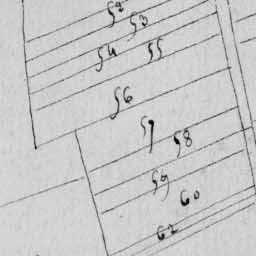 52
53
54
55
56
57
58
59
60
62